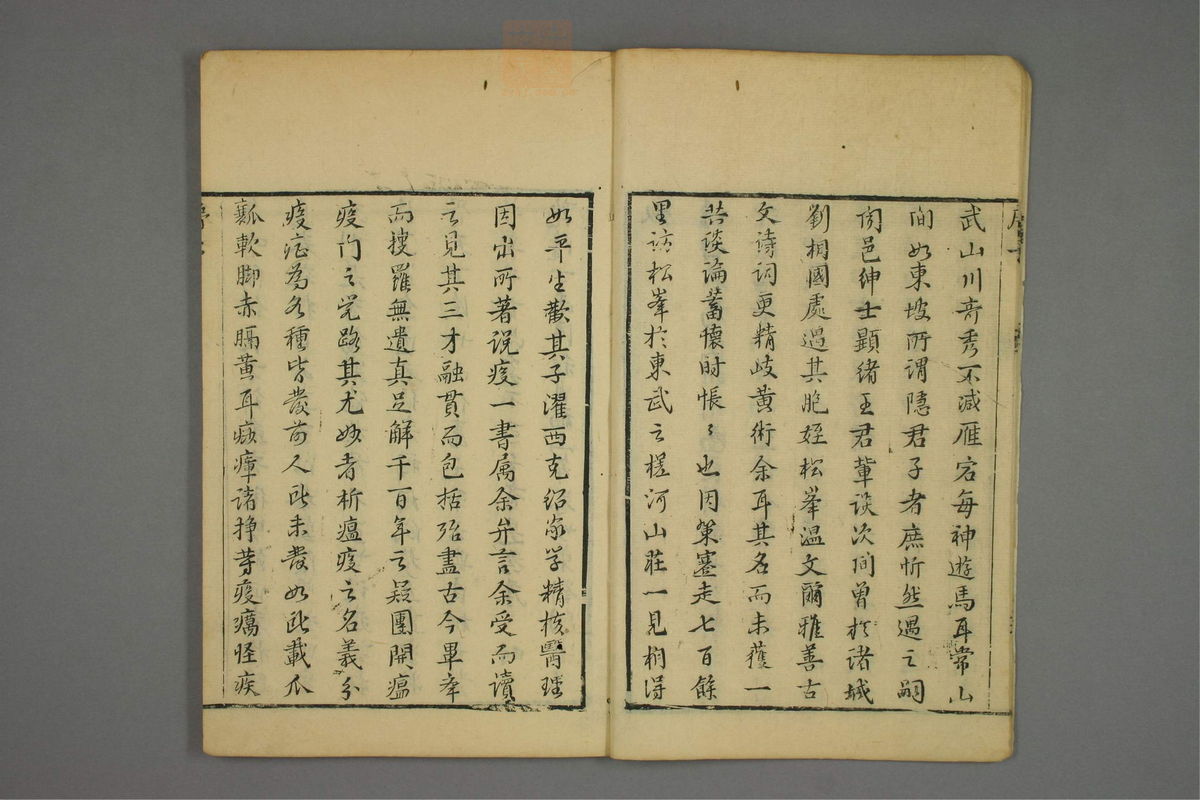 武山川奇秀不减雁宕每神遊馬耳常山
间如東坡所謂隱君子者庶忻然遇之嗣
傍邑紳士顕緒王君輩谈次间曾於诸城
劉相國處遇其胞姪松峯温文爾雅善古
文诗词更精岐黄術余耳其名而未獲一
共谈論蓄懷时悵〻也因策蹇走七百餘
里訪松峯於東武之槎河山莊一見桐得
如平生歡其子濯西克绍家学精核醫理
因出所著说疫一書属余弁言余受而讀
之見其三才融貫而包括殆盡古今畢举
而搜羅無遺真足解千百年之疑團開瘟
疫门之觉路其尤妙者析瘟疫之名義分
疫症為各種皆发前人所未发如所載爪
瓤軟脚赤膈黄耳痧瘴诸挣等疫癘怪疾
序